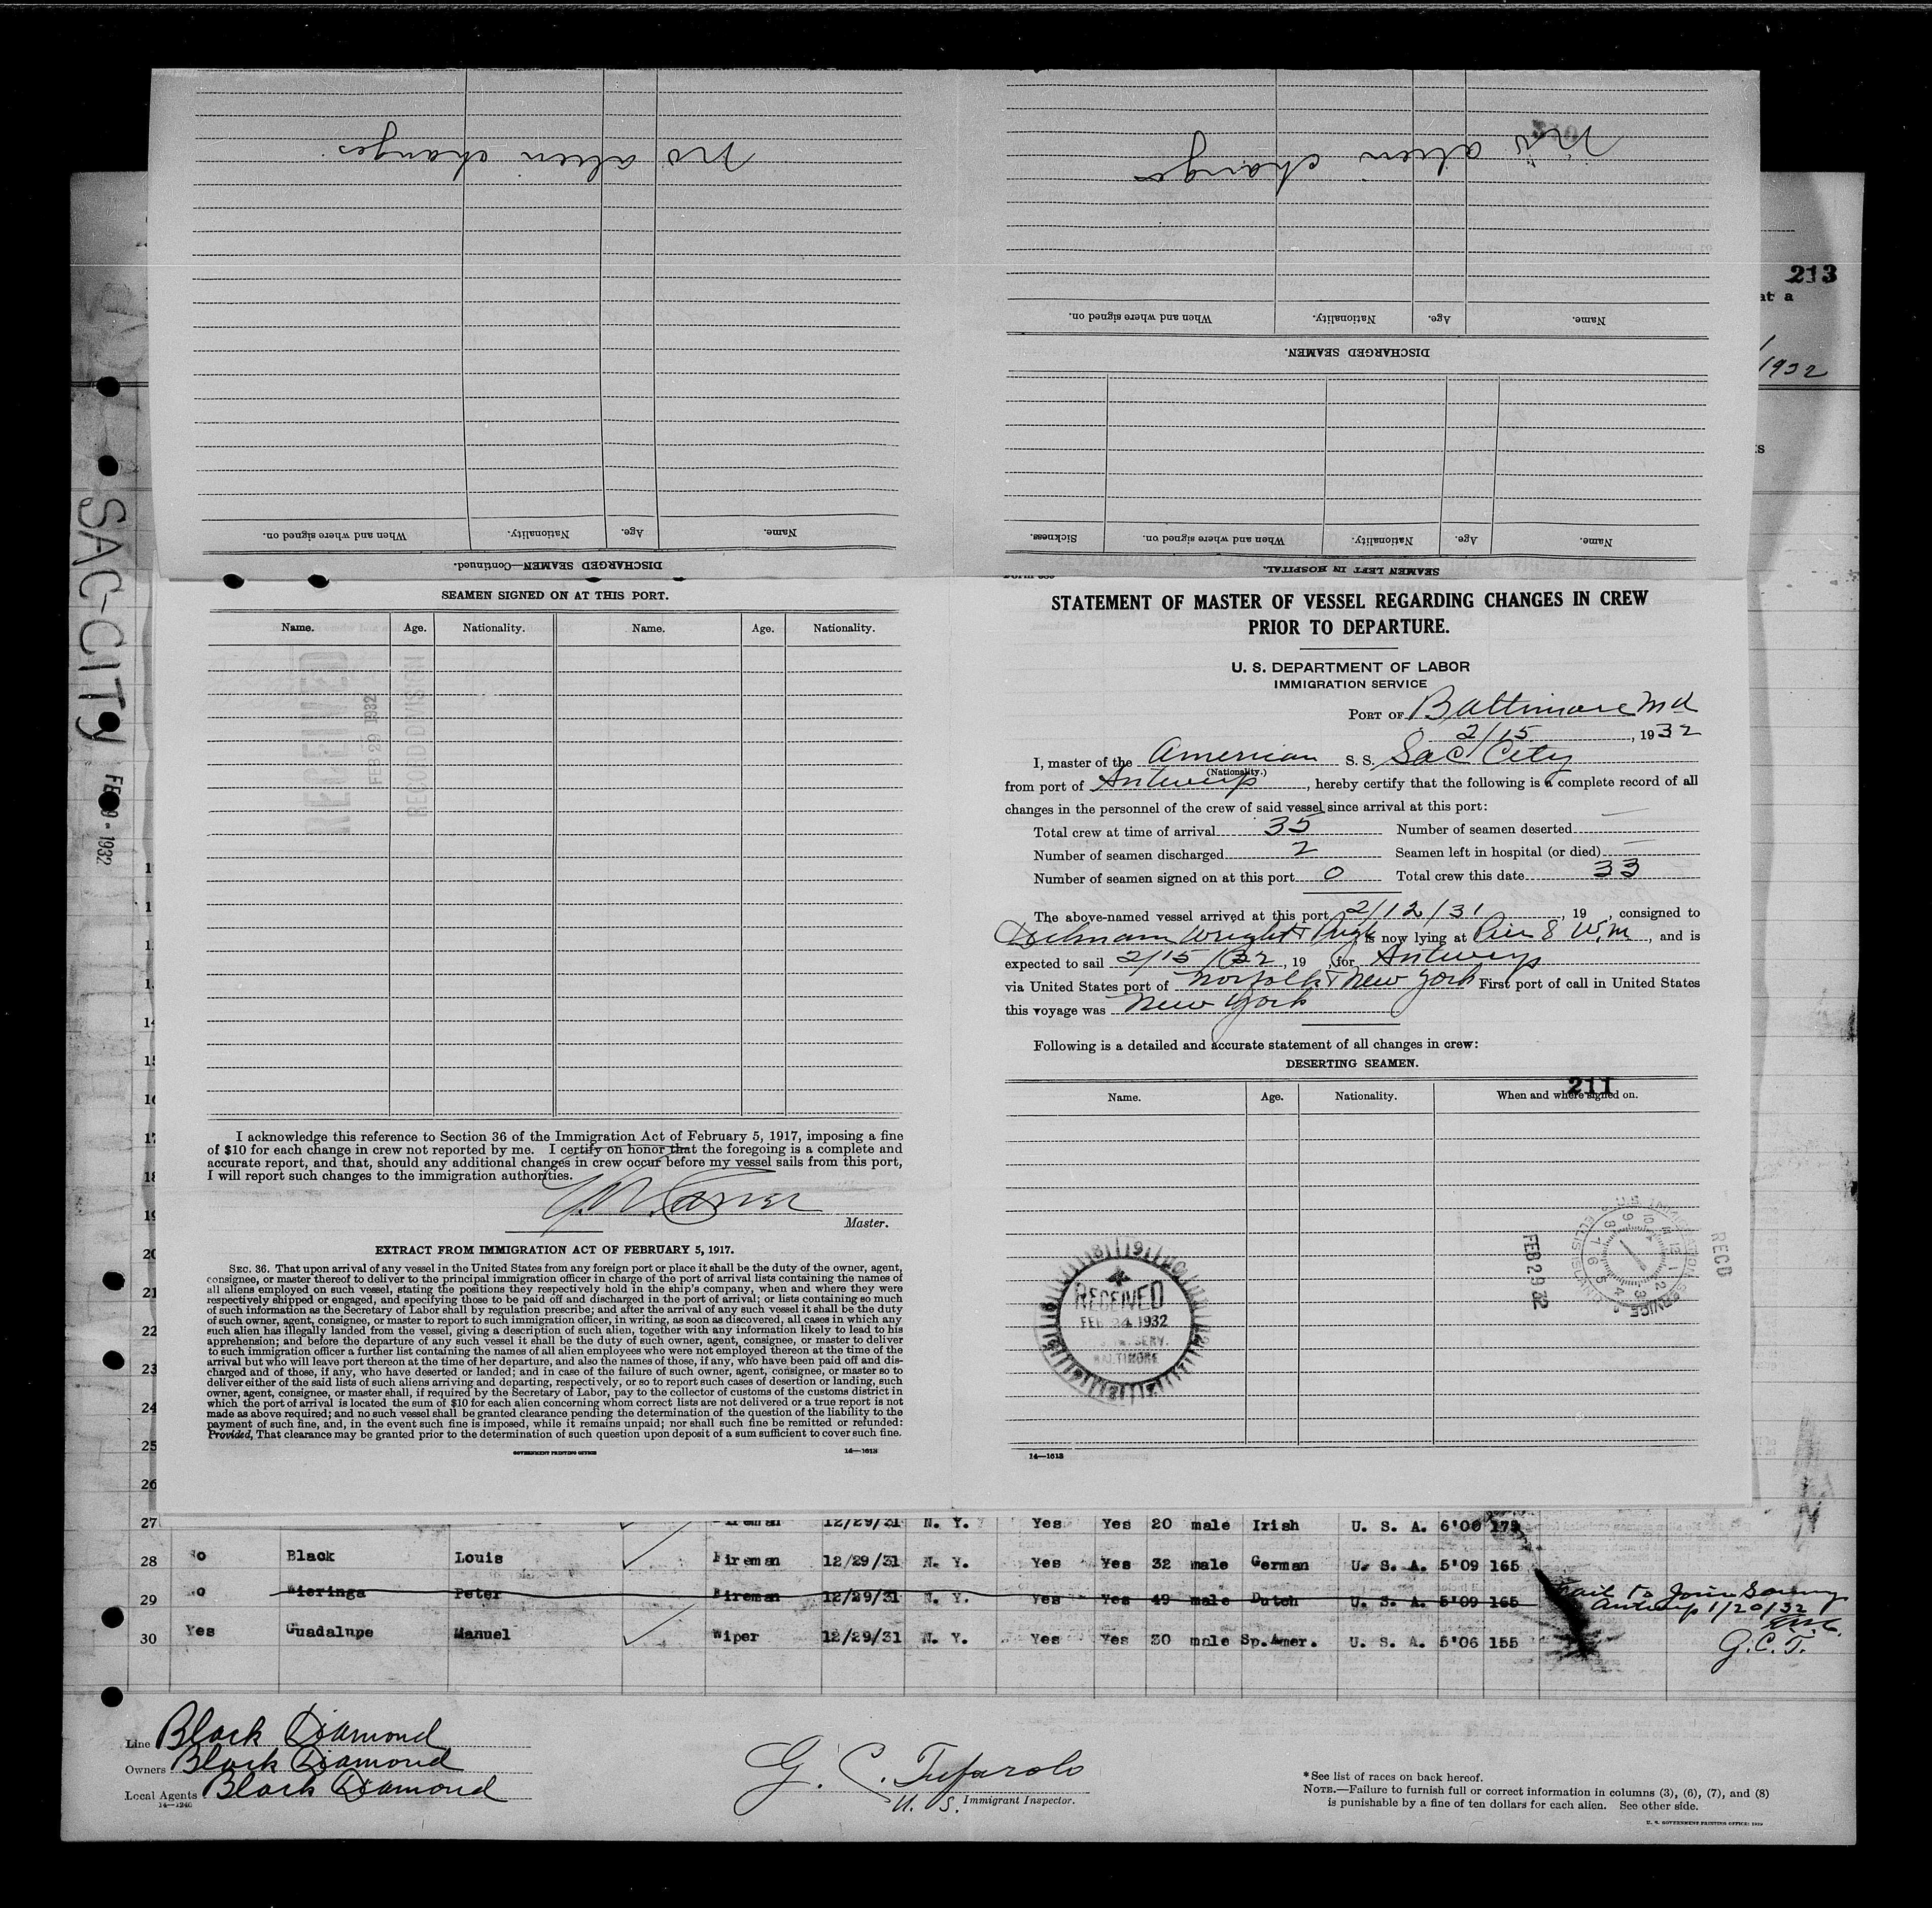 no alien changes
When and where signed on. Nationality. Age. Name.
DISCHARGED SEAMEN—Continued.
no alien changes
Name. Age. Nationality. When and where signed on.
DISCHARGED SEAMEN.
Name. Age. Nationality. When and where signed on. Sickness.
SEAMEN LEFT IN HOSPITAL.
213
at a
1932
SAC-CITY
1932
SEAMEN SIGNED ON AT THIS PORT.
Name. Age. Nationality. Name. Age. Nationality.
RECEIVED
FEB 29 1932
RECORD DIVISION
I acknowledge this reference to Section 36 of the Immigration Act of February 5, 1917, imposing a fine
of $10 for each change in crew not reported by me. I certify on honor that the foregoing is a complete and
accurate report, and that, should any additional changes in crew occur before my vessel sails from this port,
I will report such changes to the immigration authorities.
Master.
EXTRACT FROM IMMIGRATION ACT OF FEBRUARY 5, 1917.
SEC. 36. That upon arrival of any vessel in the United States from any foreign port or place it shall be the duty of the owner, agent,
consignee, or master thereof to deliver to the principal immigration officer in charge of the port of arrival lists containing the names of
all aliens employed on such vessel, stating the positions they respectively hold in the ship's company, when and where they were
respectively shipped or engaged, and specifying those to be paid off and discharged in the port of arrival; or lists containing so much
of such information as the Secretary of Labor shall by regulation prescribe; and after the arrival of any such vessel it shall be the duty
of such owner, agent, consignee, or master to report to such immigration officer, in writing, as soon as discovered, all cases in which any
such alien has illegally landed from the vessel, giving a description of such alien, together with any information likely to lead to his
apprehension; and before the departure of any such vessel it shall be the duty of such owner, agent, consignee, or master to deliver
to such immigration officer a further list containing the names of all alien employees who were not employed thereon at the time of the
arrival but who will leave port thereon at the time of her departure, and also the names of those, if any, who have been paid off and dis-
charged and of those, if any, who have deserted or landed; and in case of the failure of such owner, agent, consignee, or master so to
deliver either of the said lists of such aliens arriving and departing, respectively, or so to report such cases of desertion or landing, such
owner, agent, consignee, or master shall, if required by the Secretary of Labor, pay to the collector of customs of the customs district in
which the port of arrival is located the sum of $10 for each alien concerning whom correct lists are not delivered or a true report is not
made as above required; and no such vessel shall be granted clearance pending the determination of the question of the liability to the
payment of such fine, and, in the event such fine is imposed, while it remains unpaid; nor shall such fine be remitted or refunded:
Provided, That clearance may be granted prior to the determination of such question upon deposit of a sum sufficient to cover such fine.
GOVERNMENT PRINTING OFFICE 14—1613
STATEMENT OF MASTER OF VESSEL REGARDING CHANGES IN CREW
PRIOR TO DEPARTURE.
U. S. DEPARTMENT OF LABOR
IMMIGRATION SERVICE
PORT OF Baltimore Md
2/15, 1932
I, master of the American S. S. Sac City
(Nationality.)
from port of Antwerp, hereby certify that the following is a complete record of all
changes in the personnel of the crew of said vessel since arrival at this port:
Total crew at time of arrival 35 Number of seamen deserted —
Number of seamen discharged 2 Seamen left in hospital (or died) —
Number of seamen signed on at this port 0 Total crew this date 33
The above-named vessel arrived at this port 2/12/31, 19 , consigned to
Wright & Pugh, is now lying at Pier 8 W.M, and is
expected to sail 2/15/32, 19 , for Antwerp
via United States port of Norfolk & New York First port of call in United States
this voyage was New York
Following is a detailed and accurate statement of all changes in crew:
DESERTING SEAMEN.
211
Name. Age. Nationality. When and where signed on.
RECEIVED
FEB 24 1932
SERV.
BALTIMORE
FEB 29 32
RECD
14—1613
14
15
16
17
18
19
20
21
22
23
24
25
26
27 Fireman 12/29/31 N. Y. Yes Yes 20 male Irish U. S. A. 6'00 173
28 No Black Louis Fireman 12/29/31 N. Y. Yes Yes 32 male German U. S. A. 5'09 165
29 No Wieringa Peter Fireman 12/29/31 N. Y. Yes Yes 49 male Dutch U. S. A. 5'09 165
Antwerp 1/20/32
30 Yes Guadalupe Manuel Wiper 12/29/31 N. Y. Yes Yes 30 male Sp.Amer. U. S. A. 5'06 155
G.C.T.
Line Black Diamond
Owners Black Diamond
Local Agents Black Diamond
14—1240
G. C. Tufarolo
U. S. Immigrant Inspector.
*See list of races on back hereof.
NOTE.—Failure to furnish full or correct information in columns (3), (6), (7), and (8)
is punishable by a fine of ten dollars for each alien. See other side.
U. S. GOVERNMENT PRINTING OFFICE: 1929